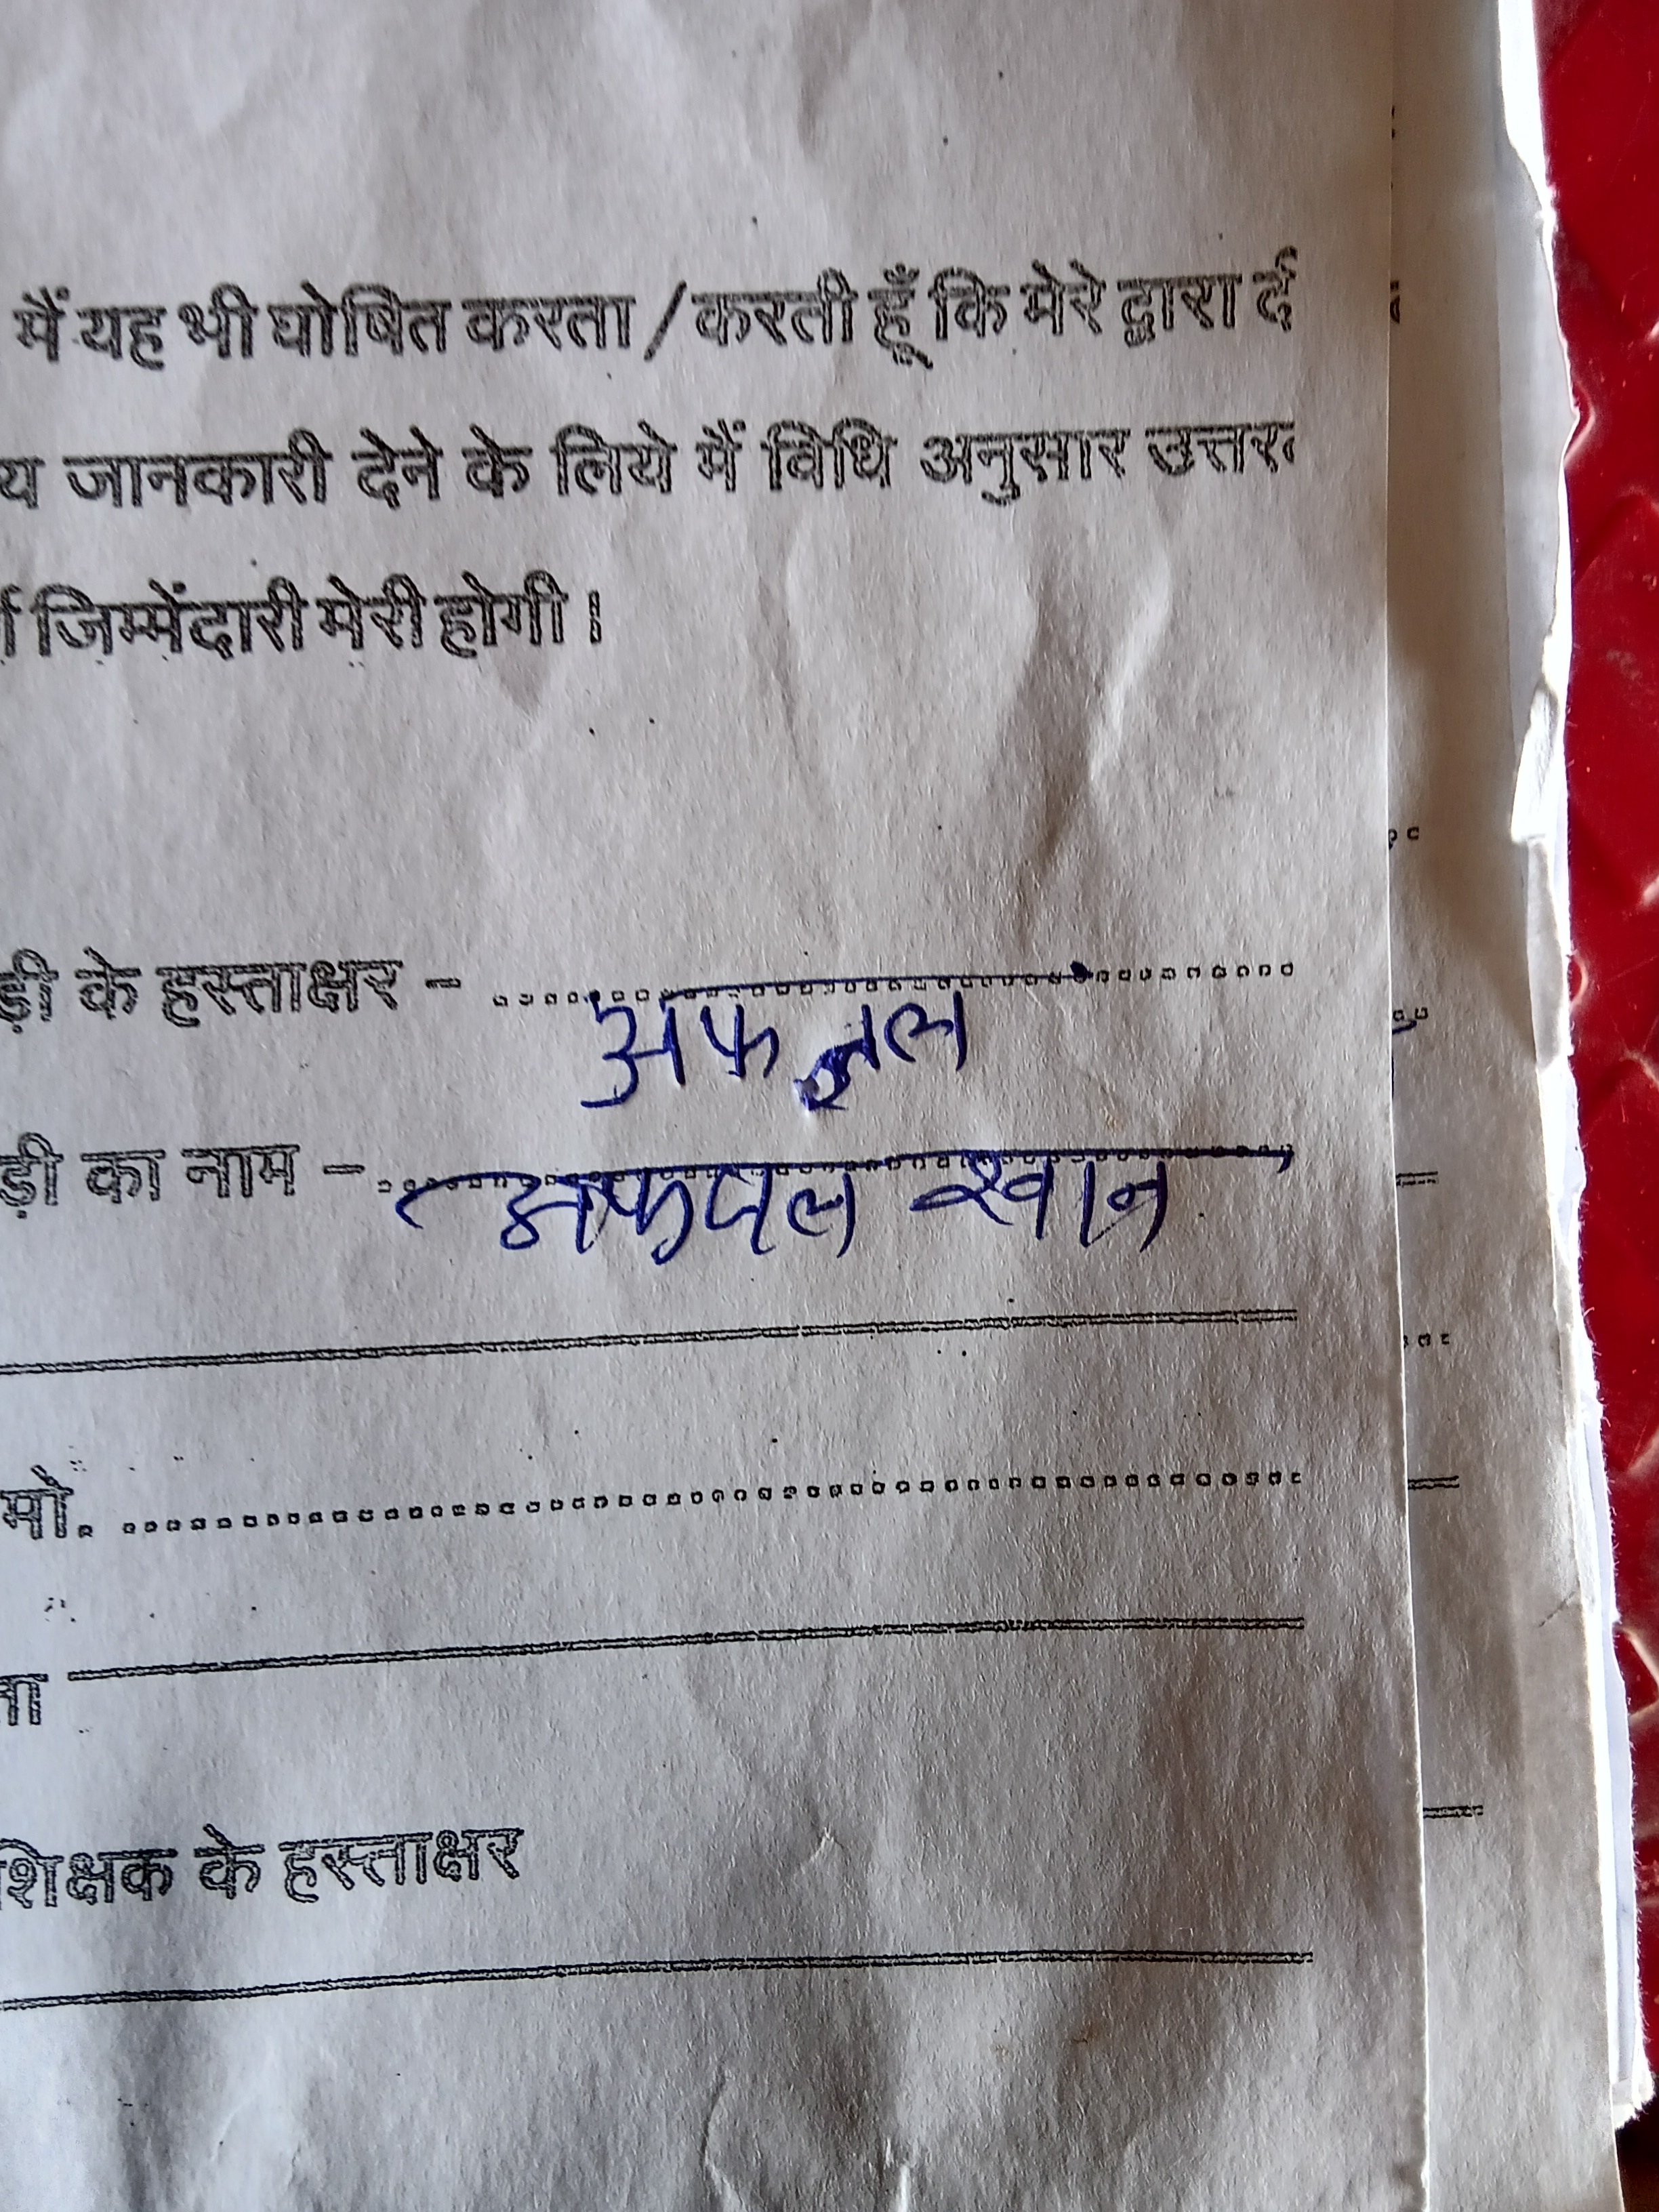 मैं यह भी घोषित करता / करती हूँ कि मेरे द्वारा
जानकारी देने के लिये मैं विधि अनुसार
जिम्मेंदारी मेरी होगी ।
ड़ी के हस्ताक्षर - ....................
अफजल
ड़ी का नाम - ....................
अफजल खान
मो. ....................
शिक्षक के हस्ताक्षर